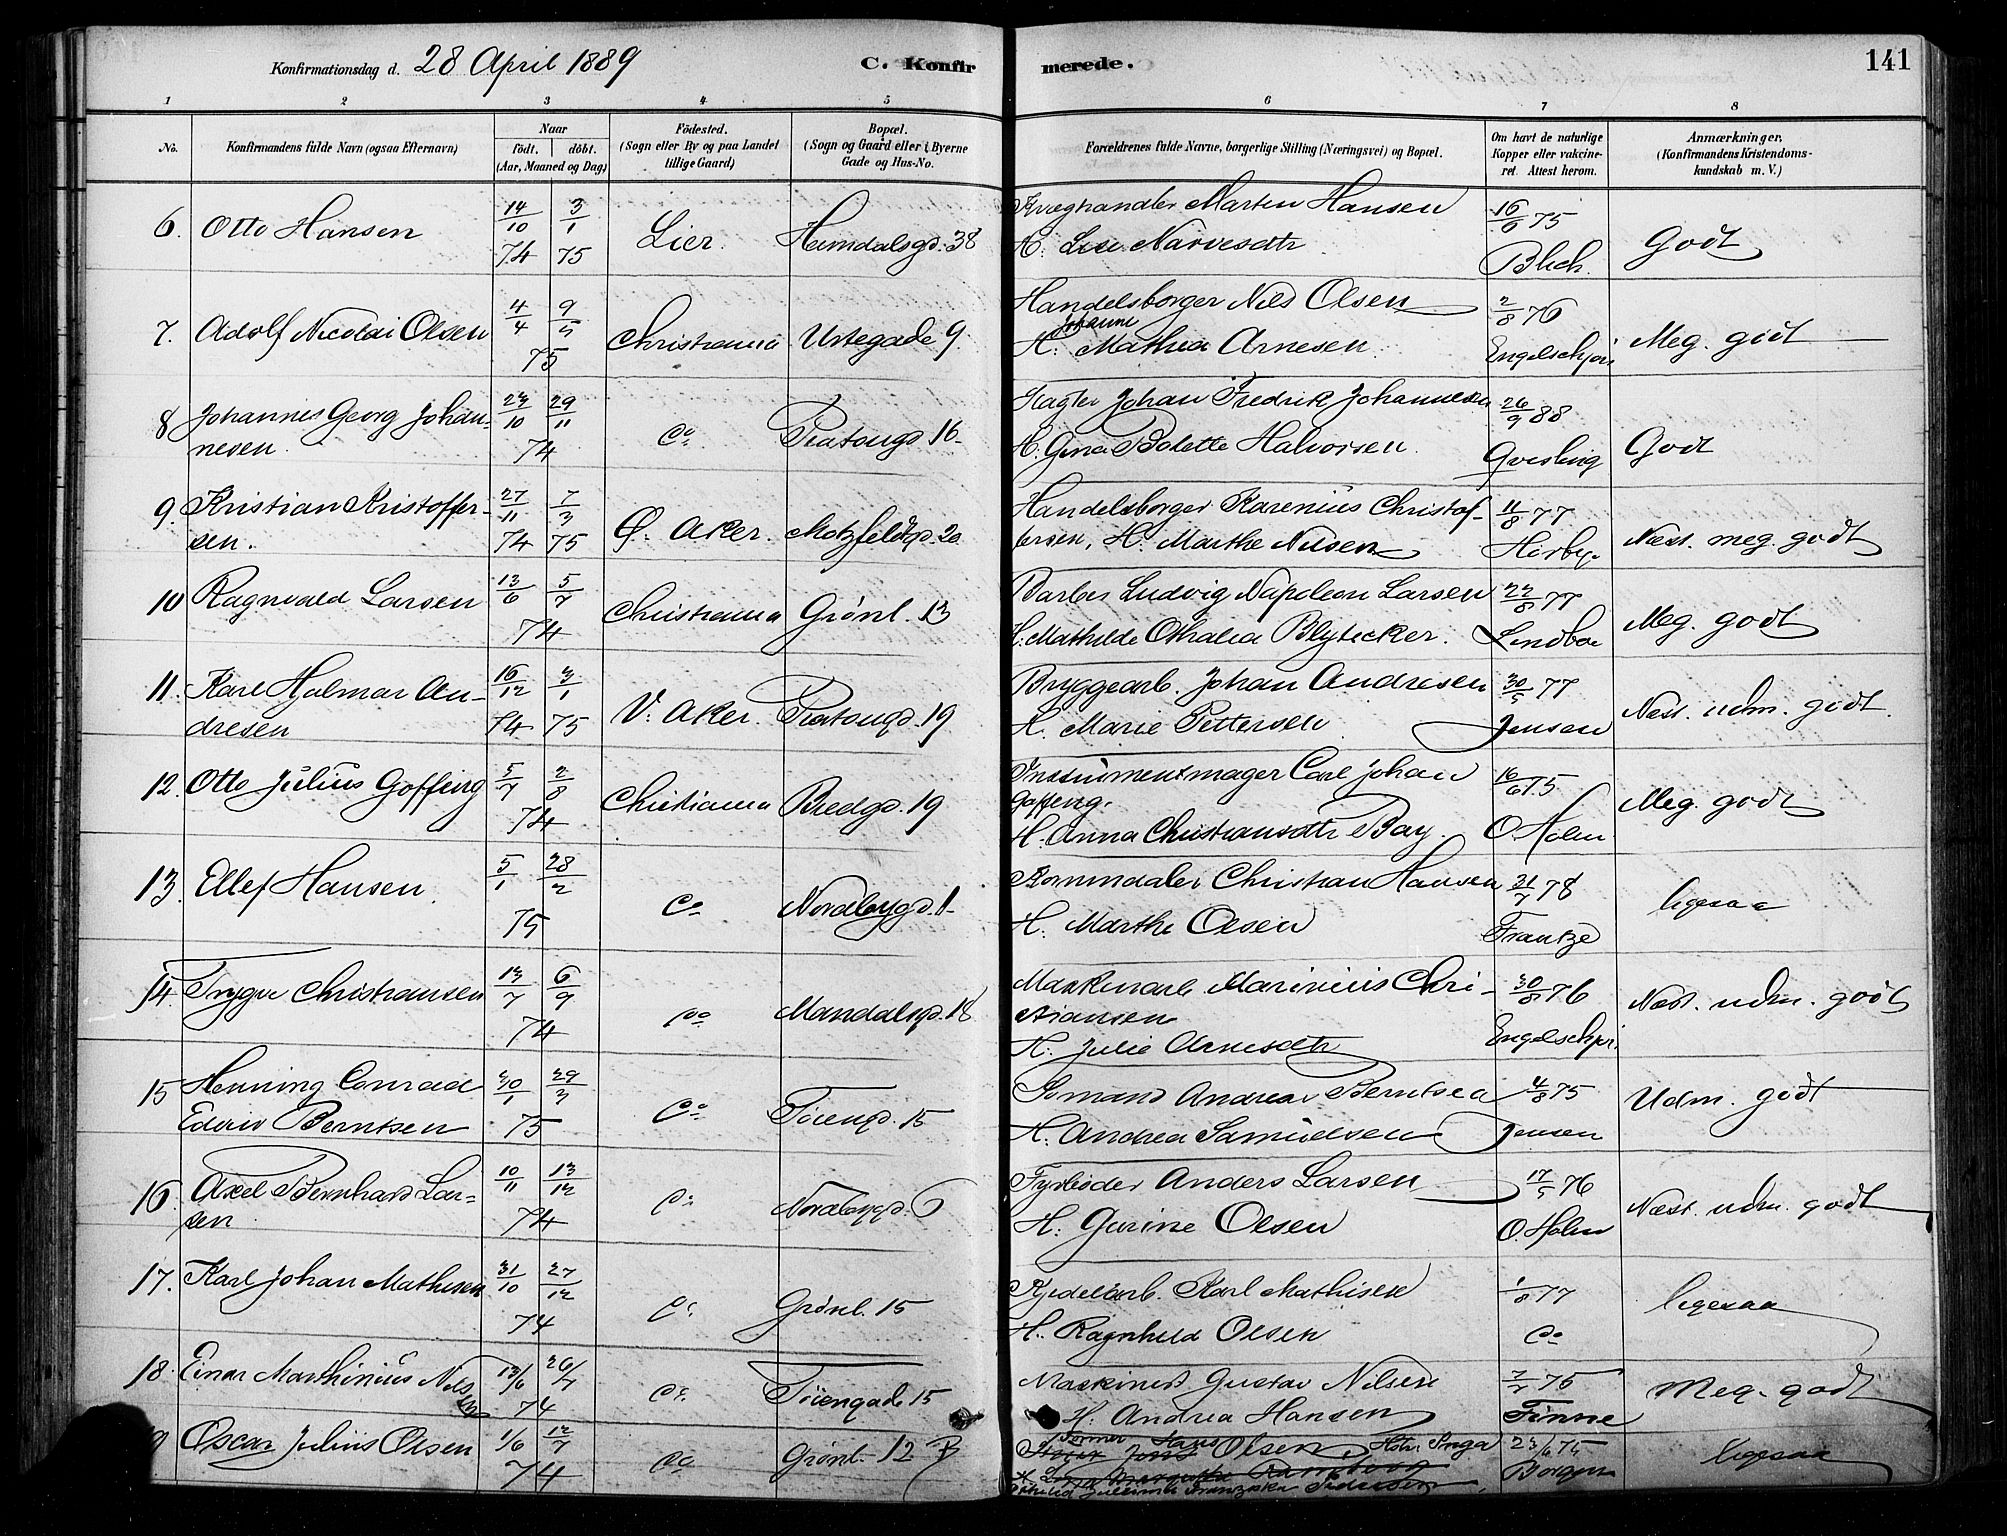 Konfirmationsdag d. 28 April 1889 C. Konfirmerede. 141
1 2 3 4 5 6 7 8
No. Konfirmandens fulde Navn (ogsaa Efternavn) Naar födt. döbt. (Aar, Maaned og Dag) Födested. (Sogn eller By og paa Landet tillige Gaard) Bopæl. (Sogn og Gaard eller i Byerne Gade og Hus-No. Forældrenes fulde Navne, borgerlige Stilling (Næringsvei) og Bopæl. Om havt de naturlige Kopper eller vakcineret. Attest herom. Anmærkninger. (Konfirmandens Kristendomskundskab m. V.)
6. Otto Hansen 14/10 74 3/1 75 Lier. Heimdalsgd. 38 Kræghandler Martin Hansen 75
H. Lise Narvesdtr Blich. Godt
7. Adolf Nicolai Olsen 4/4 9/5 75 Christiania Urtegade 9. Handelsborger Nils Olsen 2/8 76
H. Johanne Mathea Arnesen Engelschjøn Meg. godt
8 Johannes Georg Johan- 29/11 74 Co Platougd. 16 Johan Fredrik Johannesen 26/9 88
nesen. H. Gina Bolette Halvorsen. Qvisling Godt
9. Kristian Kristoffer- 27/11 74 7/3 75 Ø. Aker. Motzfeldtgd. 20 Handelsborger Karenius Christof- 11/8 77
sen. fersen, H. Marthe Nilsen Næst. meg. godt
10 Ragnvald Larsen 13/6 5/7 74 Christiania Grønl. 13 Barber Ludvig Napoleon Larsen 22/8 77
H. Mathilde Othalia Blytecker. Lindboe Meg. godt
11. Karl Hjalmar An- 16/12 74 3/1 75 V. Aker. Platougd. 19 Bryggearb. Johan Andresen 30/5 77
dresen H. Marie Pettersen Jensen Næst. udm. godt.
12. Otto Julius Goffeng 5/7 2/8 74 Christiania Bredgd. 19 Instrumentmager Carl Johan 16/6 75
Goffeng.
H. Anna Christiansdtr Bay. O Holm Meg. godt
13. Ellef Hansen. 5/1 28/2 75 Co Nordbygd. 1 Christian Hansen 31/7 78
H. Marthe Olsen Frantze ligesaa
14. Trygve Christiansen 13/7 6/9 74 Co Mandalsgd. 18 Maskinarb. Marinius Chri- 30/8 76
stiansen
H. Julie Arnesdtr Engelschjøn. Næst. udm. godt
15 Henning Conrad 30/1 29/3 75 Co Tøiengd. 15 Sømand Andreas Berntsen 4/8 75
Edvin Berntsen H. Andrea Samuelsen Jensen Udm. godt
16. Axel Bernhard Lar- 10/11 13/12 74 Co Nordbygd. 6 Fyrbøder Anders Larsen 17/5 76
sen H. Gurine Olsen O. Holm Næst. udm. godt
17. Karl Johan Mathisen 31/10 27/12 74 Co Grønl. 15 Kjedelarb. Karl Mathisen 1/8 77
H. Ragnhild Olsen Co ligesaa
18. Einar Marthinius Nilsen 13/6 26/7 74 Co Tøiengade 15 Maskinist Gustav Nilsen 75
H. Andrea Hansen Finne Meg. godt
9 Oscar Julius Olsen 1/6 12/7 74 Co Grønl. 12 B Former Hans Olsen, Inga 23/6 75
Borgen ligesaa